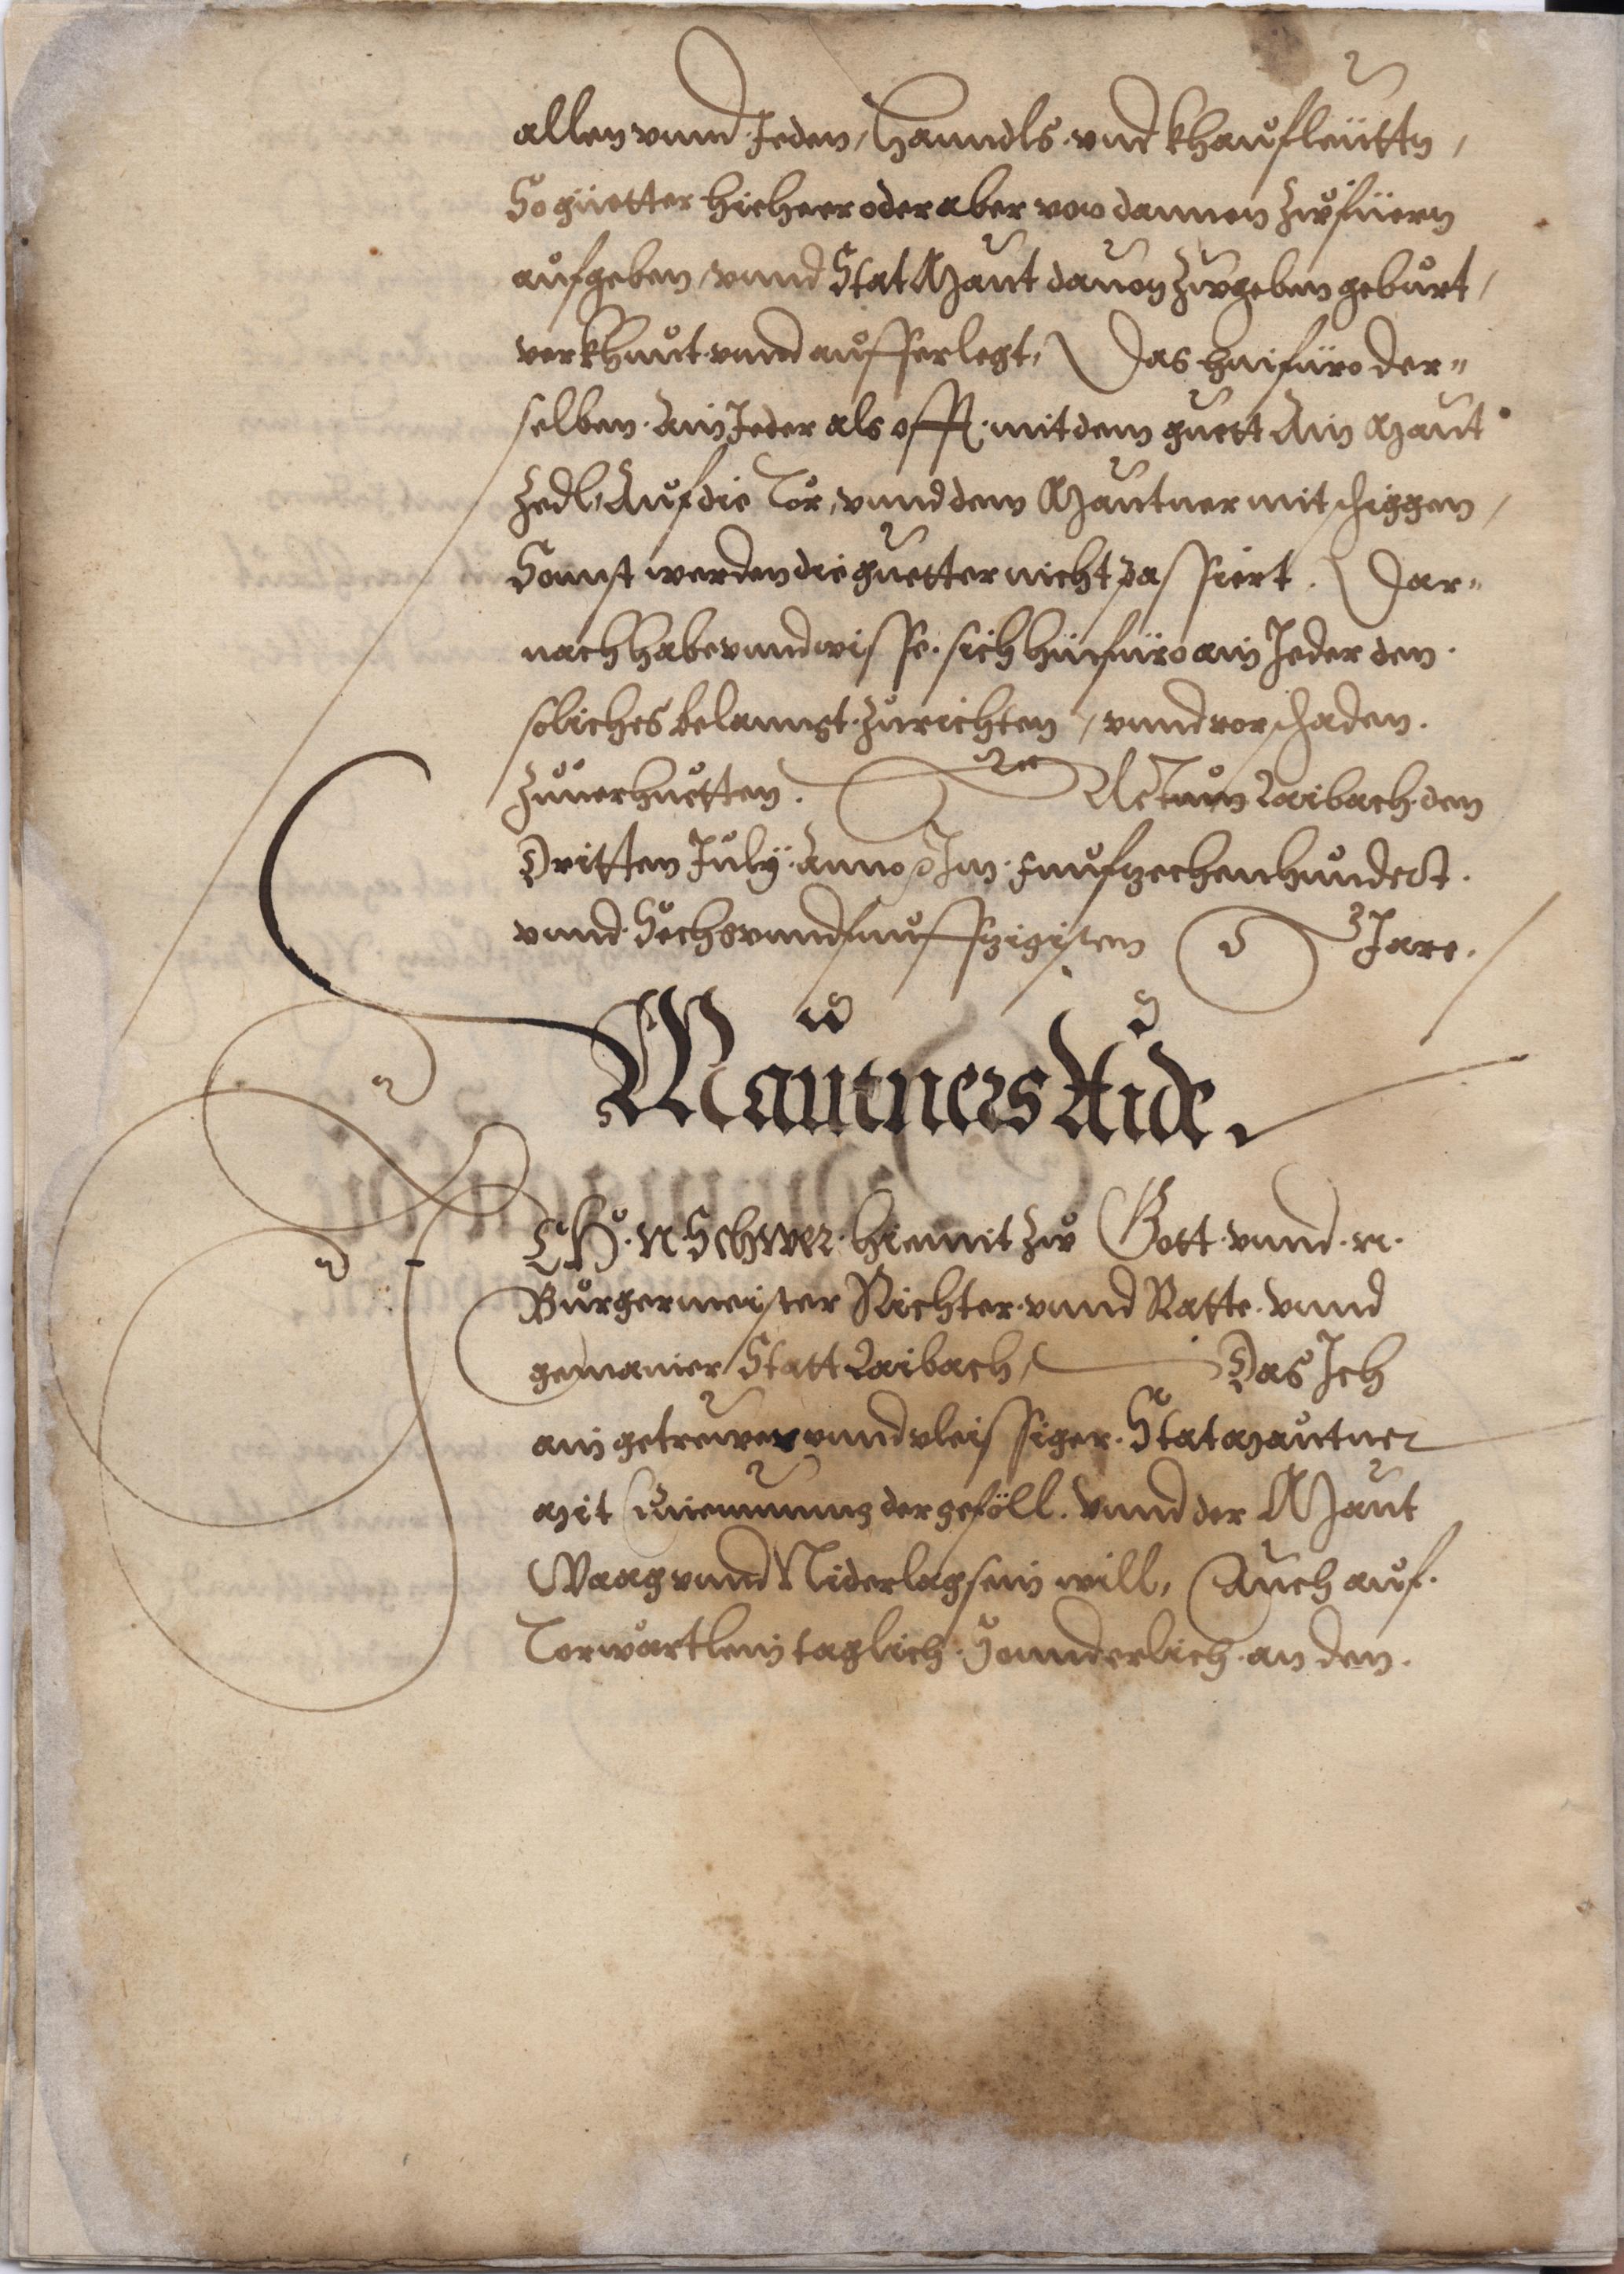 allen vnnd Jeden, Hanndls vnd Khaufleütten,
So güetter hieheer oder aber von dannen zwfüern
aufgeben, vnnd Stat Maut dauon zwgeben gebürt,
verkhünt vnnd aufferlegt, Das hinfüro der=
selben. Ain Jeder als offt. mit dem guett Ain Maut
Zedl, Auf die Tör, vnnd dem Mautner mit schiggen,
Sonnst werden die guetter nicht passiert. Dar=
nach habe vnnd wisse. sich hinfüro ain Jeder den.
soliches belanngt. zurichten, vnnd vor schaden.
zuuerhuetten. Actum Laibach. den
Dritten July. Anno Im. Funfzechenhundert.
vnnd. Sechsvnndfunffzigisten Jare.
Mautners Aide.
ICH. N. Schwer. hiemit zw Gott. vnnd. N.
Burgermeister Richter. vnnd Ratte. vnnd
gemainer Statt Laibach, Das Ich
ain getrewer vnnd vleissiger. Stat Mautner
Mit Einemung der geföll. vnnd der Maut
Waag vnnd Niderlag sein will, Auch auf.
Torwartlein taglich. Sonnderlich. an den.